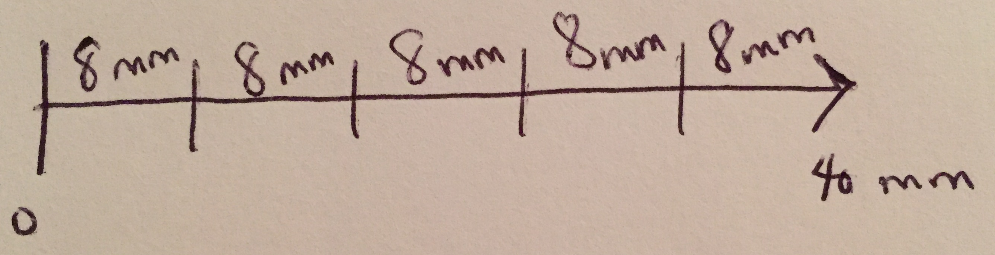 8mm 8mm 8mm 8mm 8mm
40 mm
0